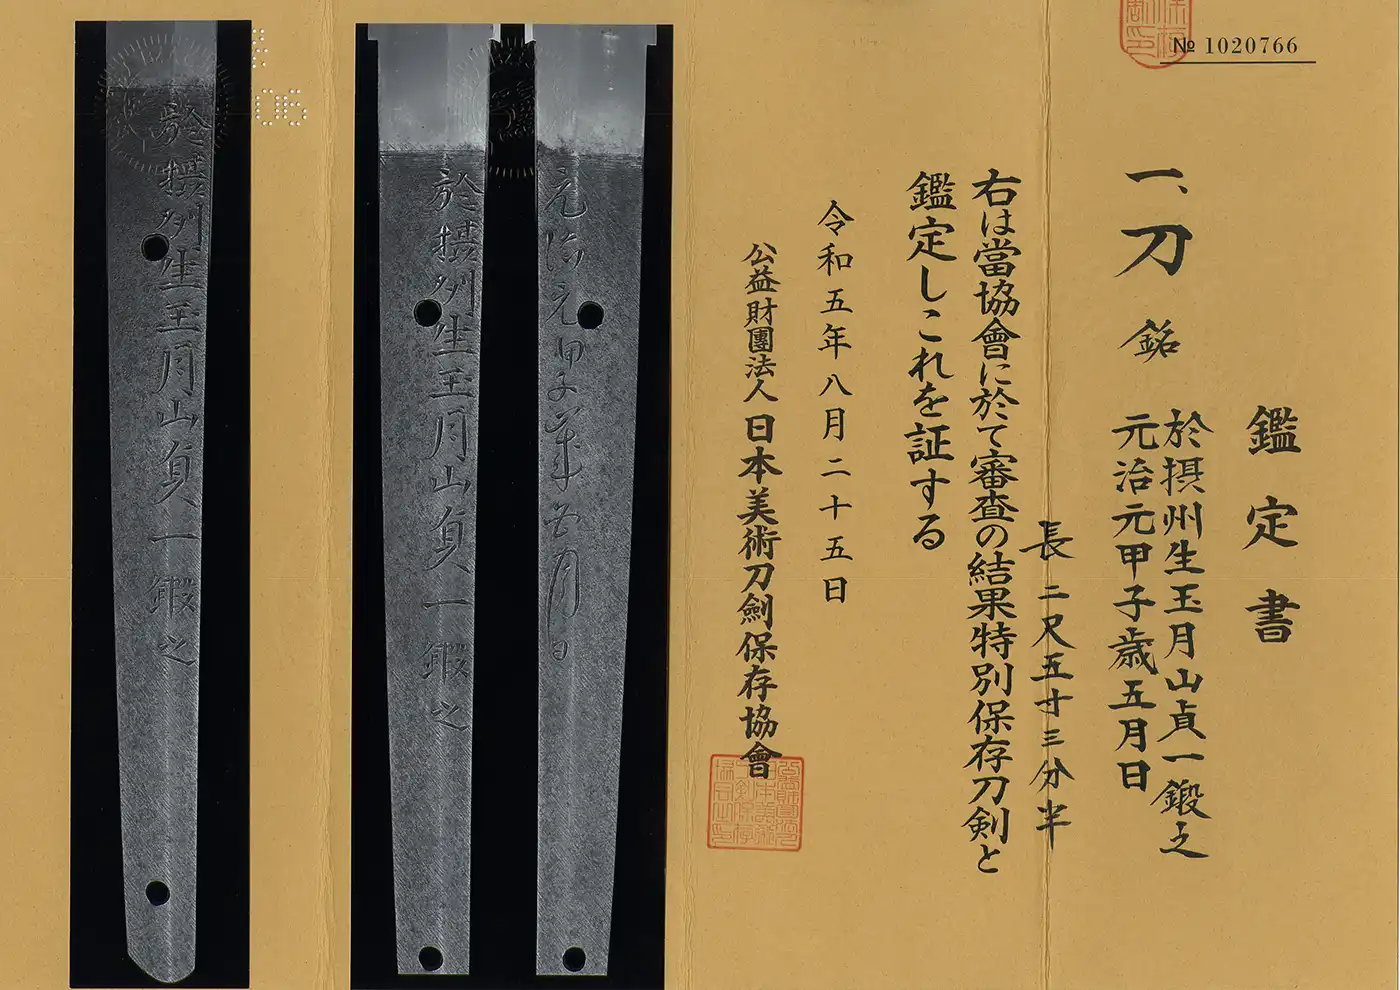 № 1020766
鑑定書
一、刀 銘
於摂州生玉月山貞一鍛之
元治元甲子歳五月日
長 二尺五寸三分半
右は當協會に於て審査の結果特別保存刀剣と
鑑定しこれを証する
令和五年八月二十五日
公益財團法人日本美術刀劍保存協會
元治元甲子歳五月日
於摂州生玉月山貞一鍛之
06
於摂州生玉月山貞一鍛之